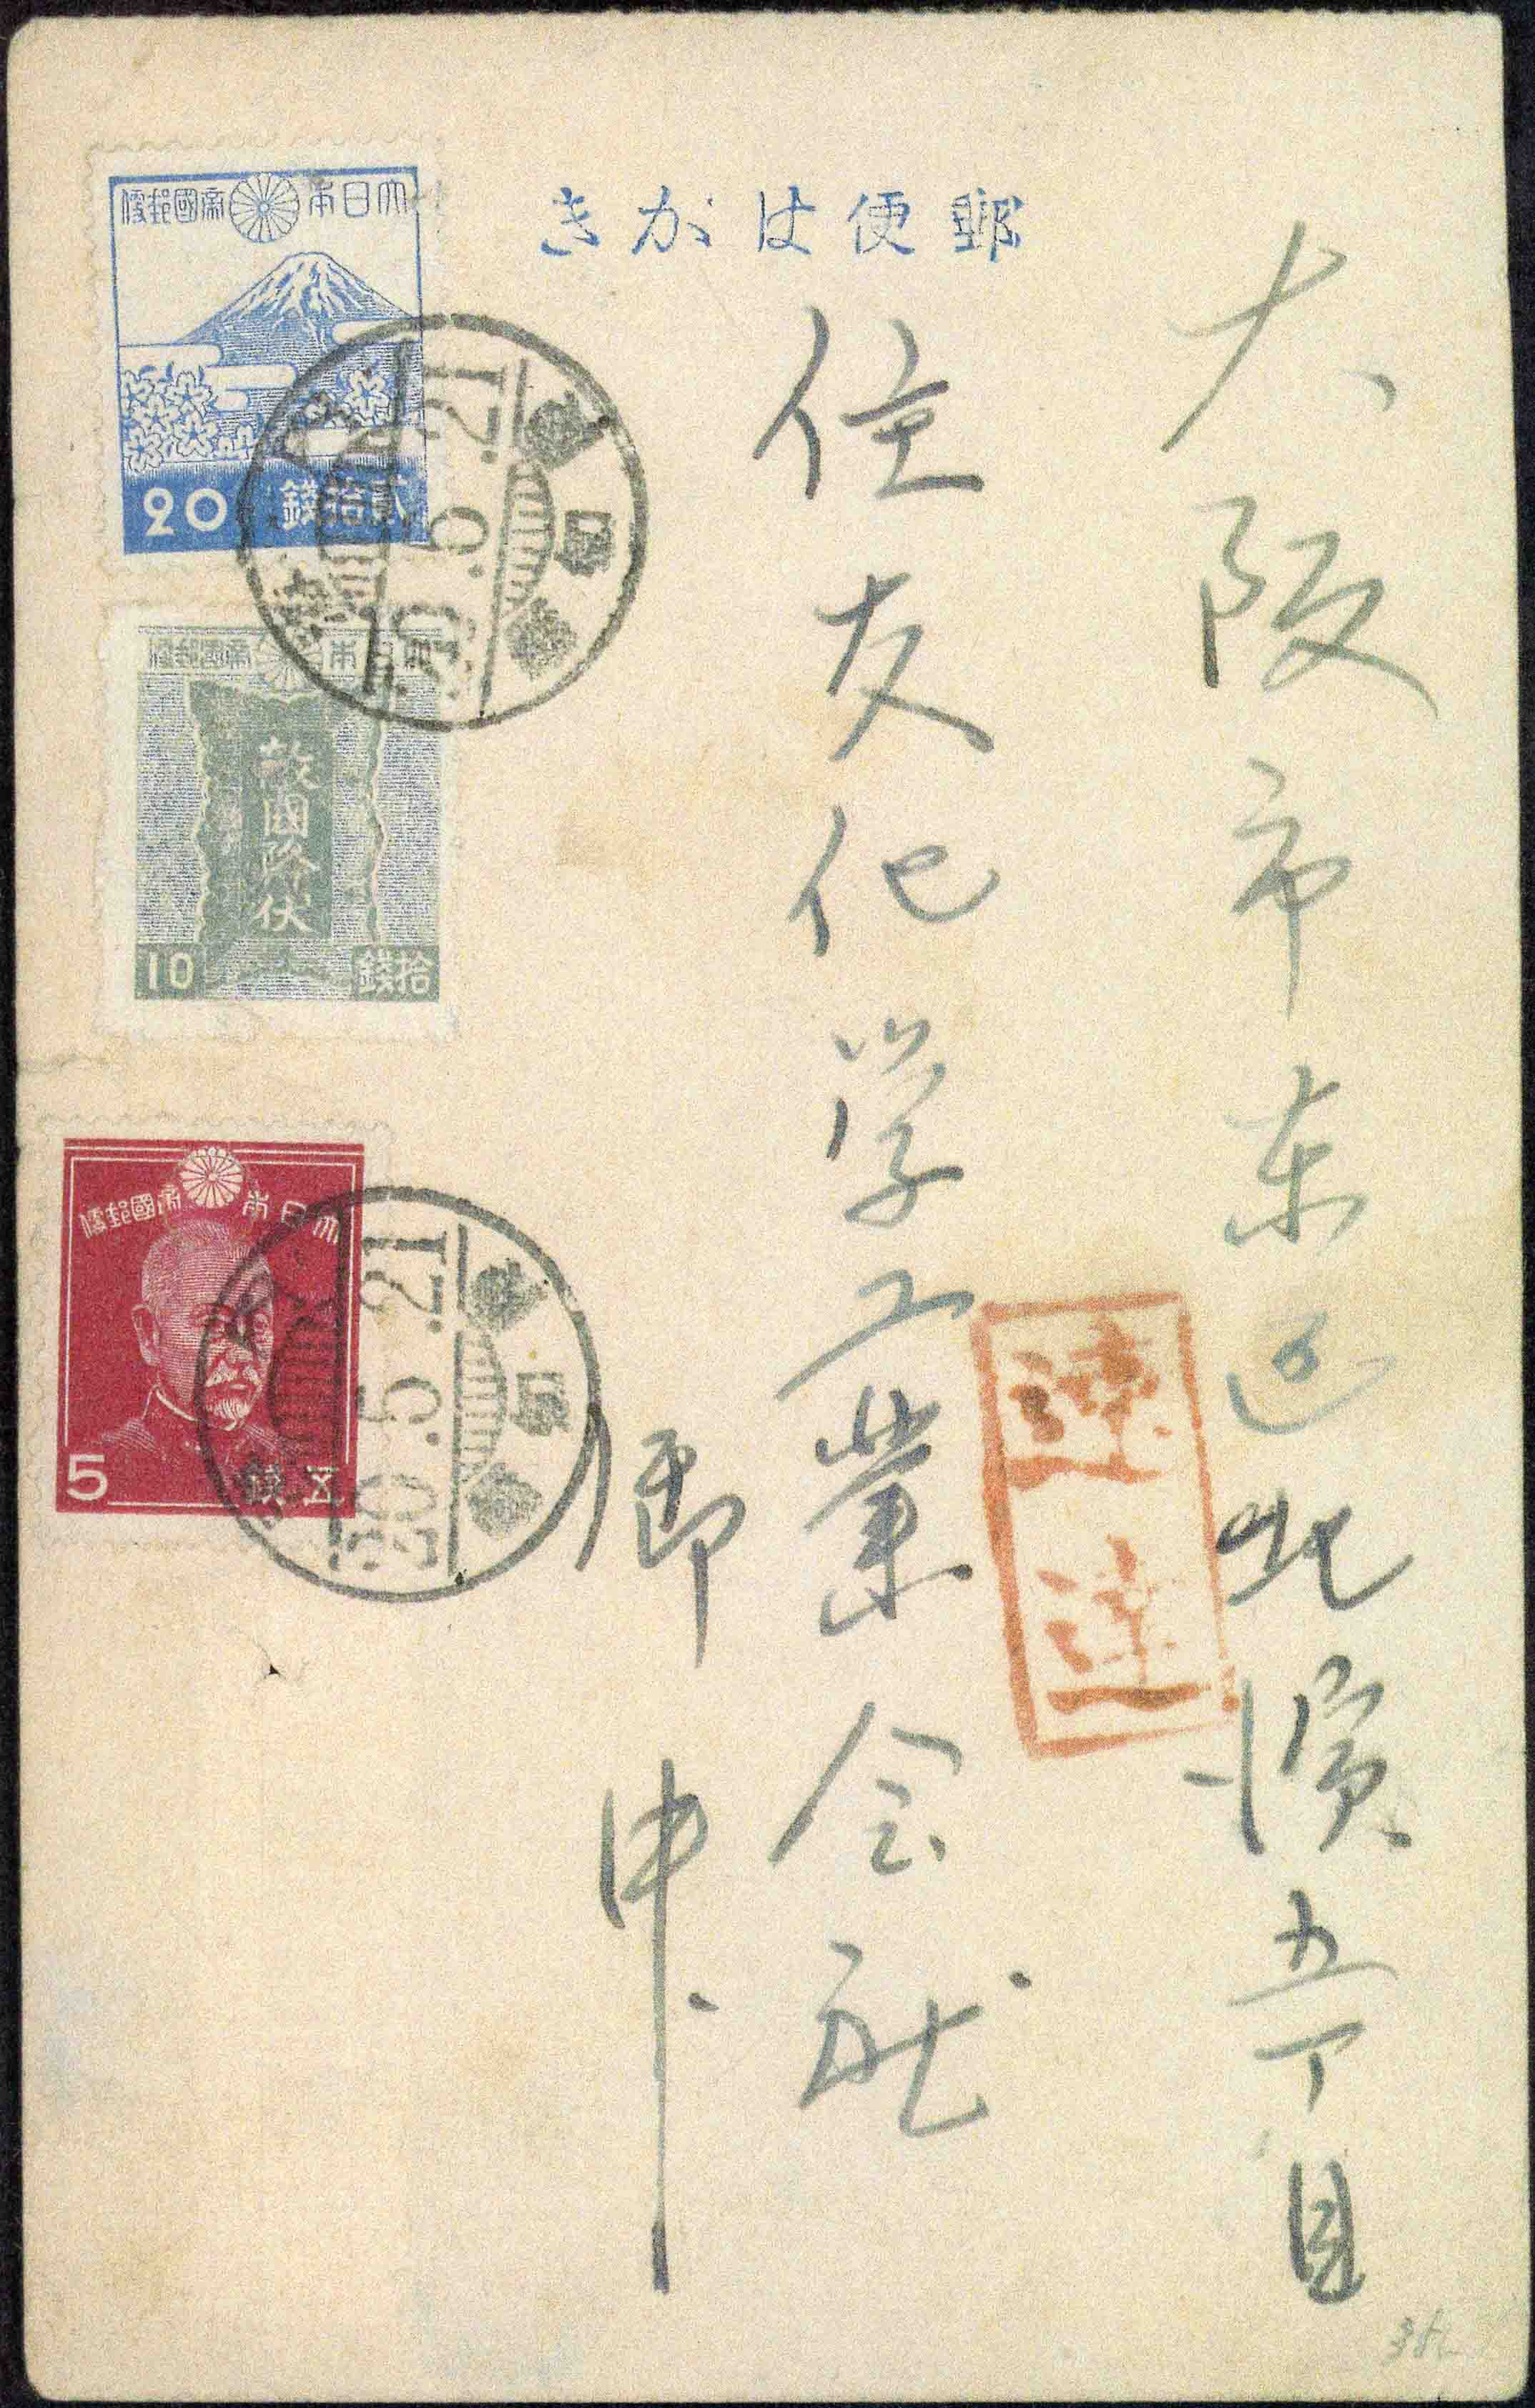 郵便はがき
大日本帝國郵便
20 貳拾錢
大日本帝國郵便
敵國降伏
10 拾錢
大日本帝國郵便
5 五錢
20.5.21
20.5.21
速達
大阪市東区北濱五丁目
住友化学工業会社
御中